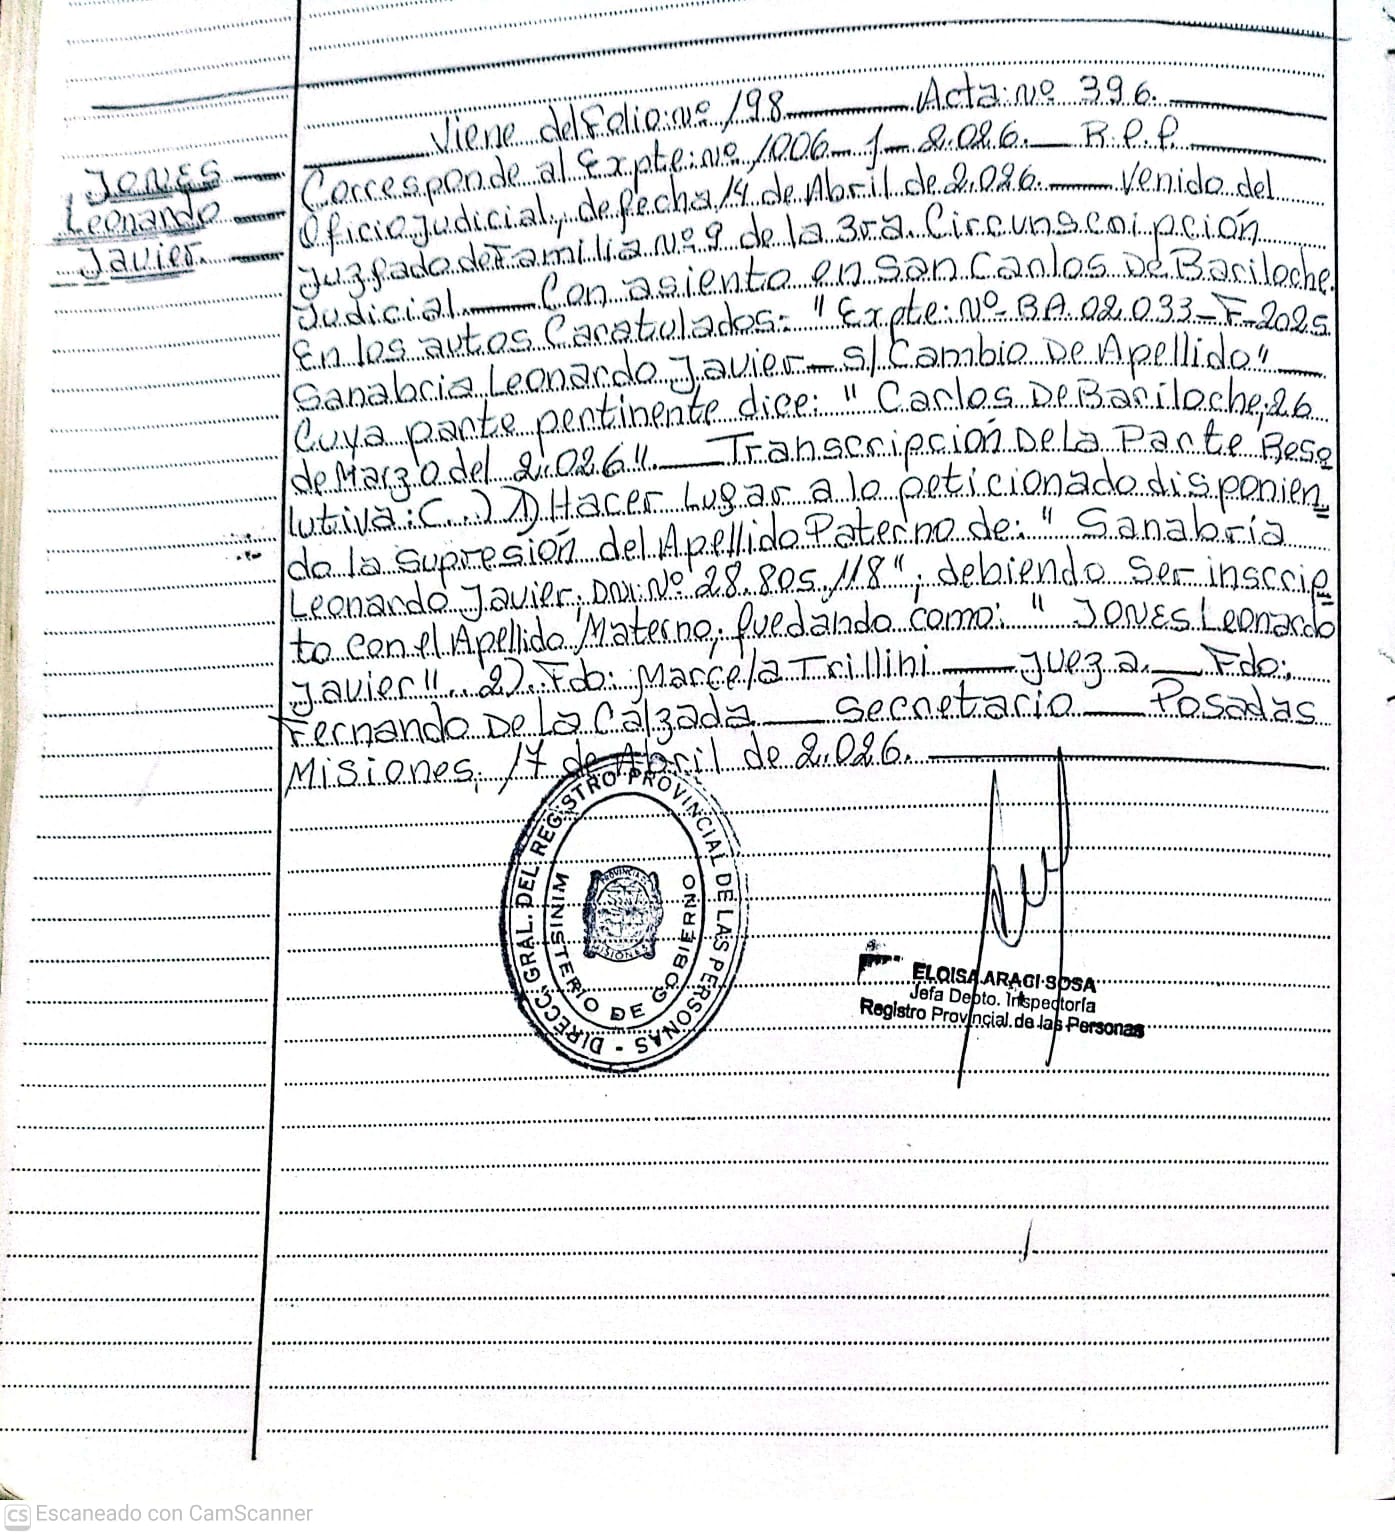 Viene del Folio: nº 198 Acta: nº 396.
JONES
Leonardo
Javier.
Corresponde al Expte: nº 1006 - J - 2.026. R.P.P.
Oficio Judicial, de fecha 14 de Abril de 2.026. Venido del
Juzgado de Familia Nº 9 de la 3ra. Circunscripción
Judicial Con asiento en San Carlos De Bariloche.
En los autos Caratulados: "Expte: Nº BA.02.033-F-2025
Sanabria Leonardo Javier - S/ Cambio De Apellido"
Cuya parte pertinente dice: " Carlos De Bariloche, 26
de Marzo del 2.026". Transcripción De la Parte Reso
lutiva: (...) 1) Hacer Lugar a lo peticionado disponien
do la supresión del Apellido Paterno de: " Sanabria
Leonardo Javier, DNI: Nº 28.805.118", debiendo ser inscrip
to con el Apellido Materno, quedando como: " JONES Leonardo
Javier".. 2). Fdo: Marcela Trillini Jueza. Fdo:
Fernando De La Calzada Secretario Posadas
Misiones, 17 de Abril de 2.026.
DIRECC. GRAL. DEL REGISTRO PROVINCIAL DE LAS PERSONAS -
MINISTERIO DE GOBIERNO
PROVINCIA DE
MISIONES
ELOISA ARACI SOSA
Jefa Depto. Inspectoría
Registro Provincial de las Personas
CS Escaneado con CamScanner